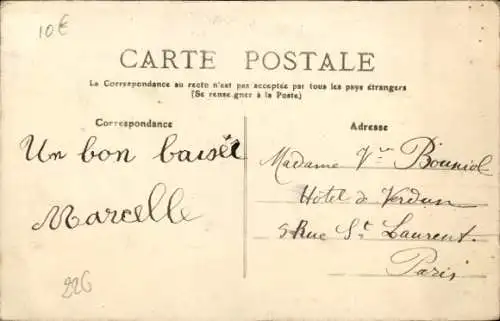 10€
CARTE POSTALE
La Correspondance au recto n'est pas acceptée par tous les pays étrangers
(Se renseigner à la Poste)
Correspondance
Un bon baiser
Marcelle
Adresse
Madame Vve Bouniol
Hôtel de Verdun
5 Rue St Laurent.
Paris
226